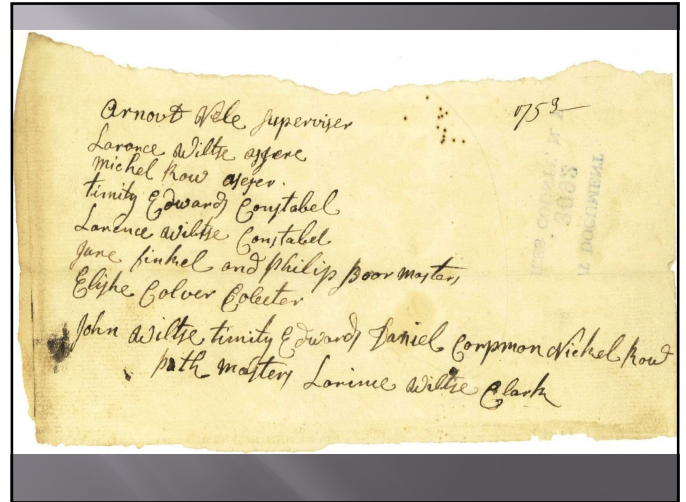 1753
Arnovt Vele superviser
Larance Wiltse assere
Michel Row aseser.
timity Edwards Constabel
Larence Wiltse Constabel
Jure finkel and Philip poor masters
Elijhe Colver Colecter
John Wiltse timity Edwards Daniel Corpmon Nickel Row
path masters Larince Wiltse Clark
3092
DOCUMENT